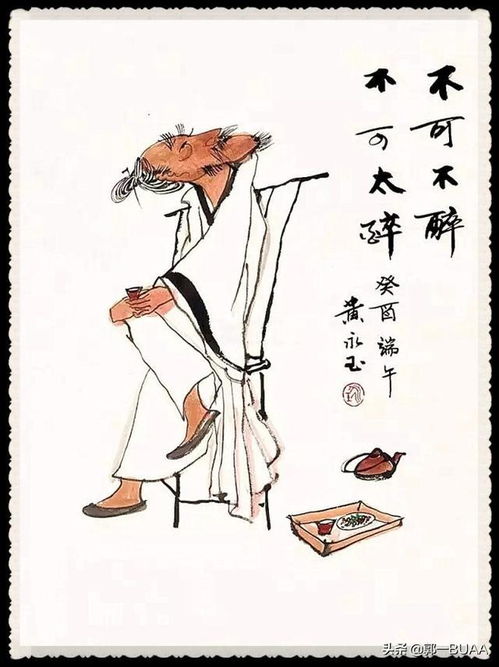 不可不醉
不可太醉
癸酉端午
黄永玉
头条 @郭一BUAA